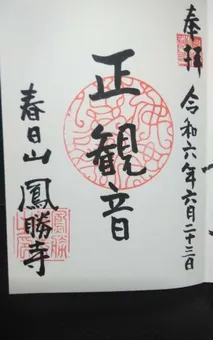 奉拝
令和六年六月二十三日
正観音
春日山 鳳勝寺